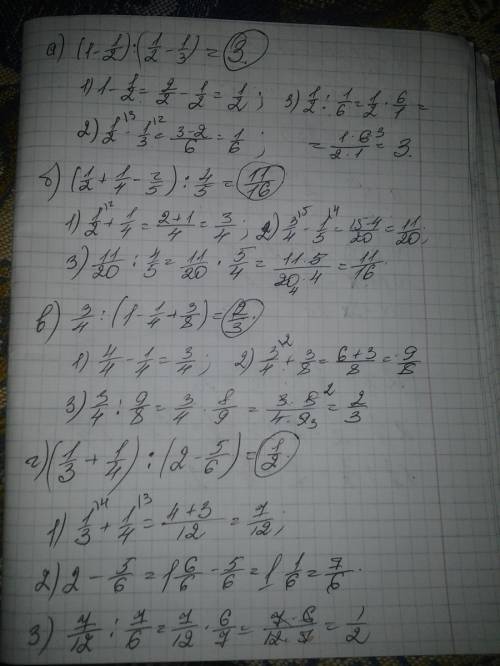 а) (1 - 1/2) : (1/2 - 1/3) = 3.
1) 1 - 1/2 = 2/2 - 1/2 = 1/2; 3) 1/2 : 1/6 = 1/2 · 6/1 =
2) 1/2^{\3} - 1/3^{\2} = (3-2)/6 = 1/6; = (1·6^3)/(2·1) = 3.
б) (1/2 + 1/4 - 2/5) : 4/5 = 11/16
1) 1/2^{\2} + 1/4 = (2+1)/4 = 3/4; 2) 3/4^{\5} - 1/5^{\4} = (15-4)/20 = 11/20;
3) 11/20 : 4/5 = 11/20 · 5/4 = (11·5)/(20_4·4) = 11/16.
в) 3/4 : (1 - 1/4 + 3/8) = 2/3.
1) 4/4 - 1/4 = 3/4; 2) 3/4^{\2} + 3/8 = (6+3)/8 = 9/8
3) 3/4 : 9/8 = 3/4 · 8/9 = (3·8^2)/(4·9_3) = 2/3
г) (1/3 + 1/4) : (2 - 5/6) = 1/2.
1) 1/3^{\4} + 1/4^{\3} = (4+3)/12 = 7/12;
2) 2 - 5/6 = 1 6/6 - 5/6 = 1 1/6 = 7/6.
3) 7/12 : 7/6 = 7/12 · 6/7 = (7·6)/(12·7) = 1/2